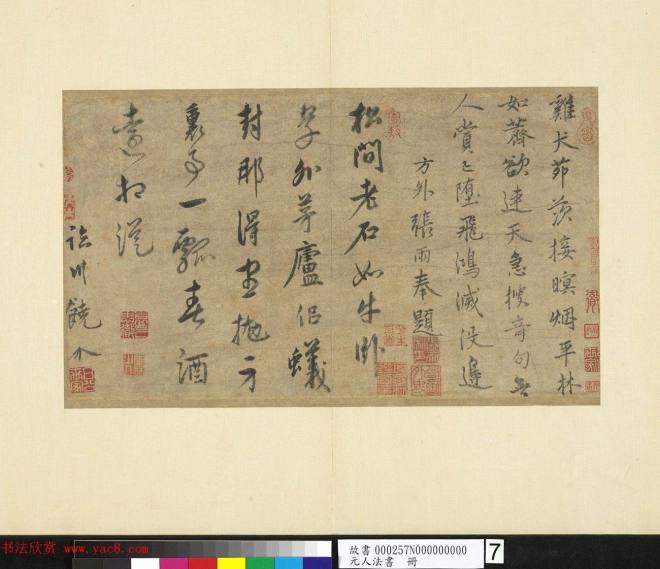 雞犬茆茨接暝烟平林
如薺欲連天急搜奇句無
人賞已墮飛鴻滅没邊
方外張雨奉題
松間老石如牛卧
草外茅廬侣蟻
封那得尘抛方
裏事一瓢春酒
相從
臨川饒介
书法欣赏 www.yac8.com
故書 000257N000000000
元人法書 冊
7